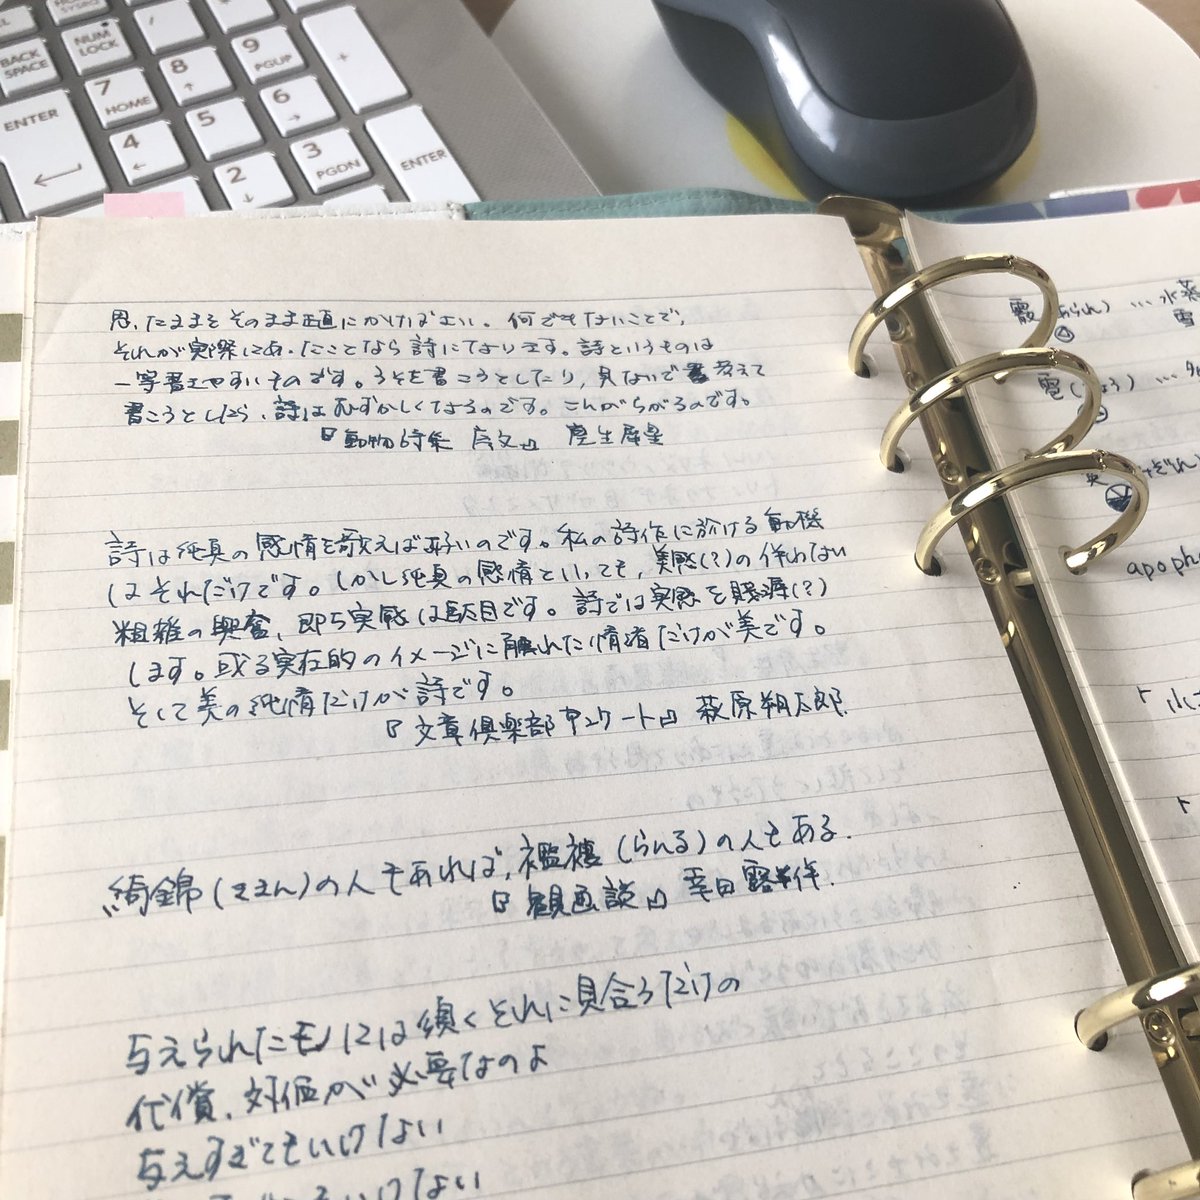 BACK SPACE
NUM LOCK
/
7 HOME
8 ↑
9 PGUP
+
ENTER
4 ←
5
6 →
2 ↓
3 PGDN
ENTER
思ったままをそのまま正直にかけばよい。何でもないことで、
それが実際にあったことなら詩になります。詩というものは
一等書きやすいものです。うそを書こうとしたり、見ないで考えて
書こうとしたら、詩はむずかしくなるのです。こんがらがるのです。
『動物詩集 序文』 室生犀星
詩は純真の感情を歌えば好いのです。私の詩作に於ける動機
はそれだけです。しかし純真の感情といっても、美感(?)の伴わない
粗雑の興奮、即ち実感は駄目です。詩では実感を賤辱(?)
します。或る実在的のイメージに触れた情緒だけが美です。
そして美の純情だけが詩です。
『文章倶楽部アンケート』 萩原朔太郎.
綺錦(ききん)の人もあれば、襤褸(らんる)の人もある.
『観画談』 幸田露伴.
与えられたモノには須くそれに見合うだけの
代償、対価が必要なのよ
与えすぎてもいけない
いけない
霰(あられ)…水蒸
雪
雹(ひょう)…
apoph